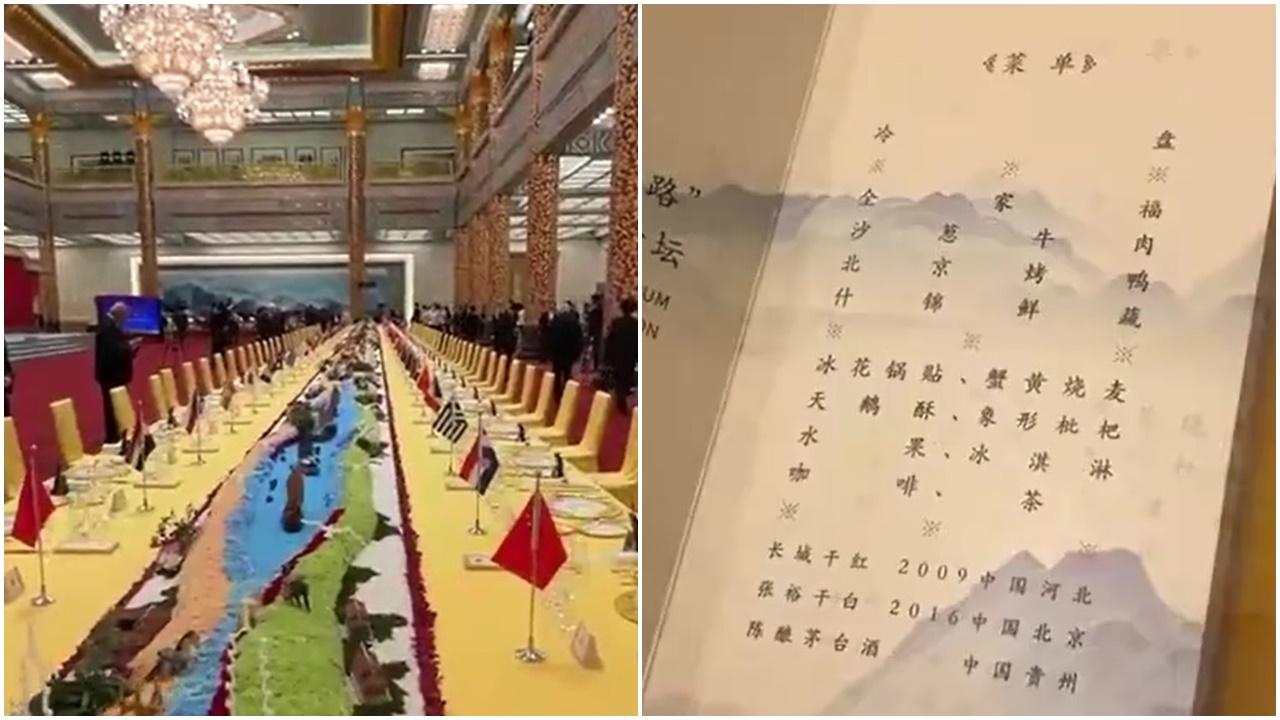 路”
坛
UM
ON
《菜 单》
冷 盘
※ ※ ※
全 家 福
沙 葱 牛 肉
北 京 烤 鸭
什 锦 鲜 蔬
※ ※ ※
冰 花 锅 贴 、 蟹 黄 烧 麦
天 鹅 酥 、 象 形 枇 杷
水 果 、 冰 淇 淋
咖 啡 、 茶
※ ※ ※
长城干红 2009 中国河北
张裕干白 2016 中国北京
陈酿茅台酒 中国贵州